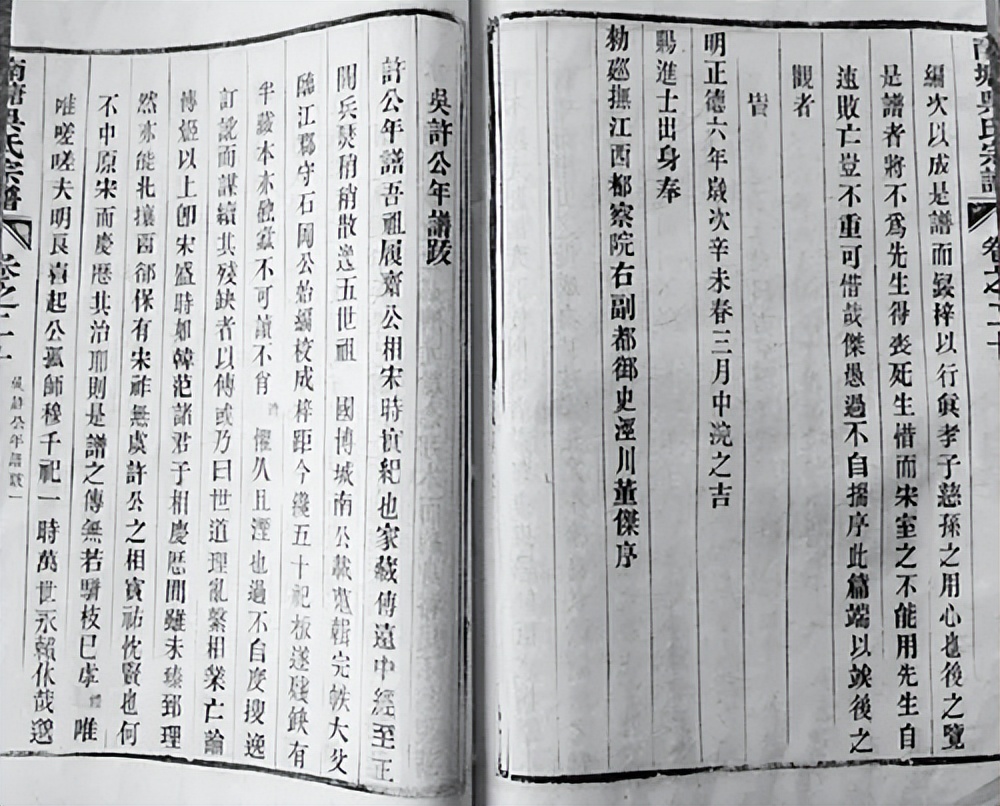 南塘吳氏宗譜
卷之二十
編次以成是譜而鋟梓以行眞孝子慈孫之用心也後之覽
是譜者將不爲先生得丧死生惜而宋室之不能用先生自
速敗亡豈不重可惜哉傑愚過不自揣序此篇端以竢後之
觀者
旹
明正德六年歲次辛未春三月中浣之吉
賜進士出身奉
勅廵撫江西都察院右副都御史涇川董傑序
吳許公年譜跋
許公年譜吾祖履齋公相宋時實紀也家藏傳遠中經至正
間兵燹稍稍散逸五世祖 國博城南公蒐輯完帙大父
臨江郡守石岡公始編校成梓距今纔五十祀板遂殘缺有
半藏本亦蝕蠧不可讀不肖 懼久且湮也過不自度搜逸
訂訛而謀續其殘缺者以傳或乃曰世道理亂繫相業亡論
傳姬以上卽宋盛時如韓范諸君子相慶歷間雖未臻郅理
然亦能北攘西郤保有宋祚無虞許公之相寳祐忱賢也何
不中原宋而慶歷其治耶則是譜之傳無若駢枝已虖 唯
唯嗟嗟夫明良喜起公孤師穆千祀一時萬世永賴休哉邈
南塘吳氏宗譜
卷之二十
吳許公年譜跋一